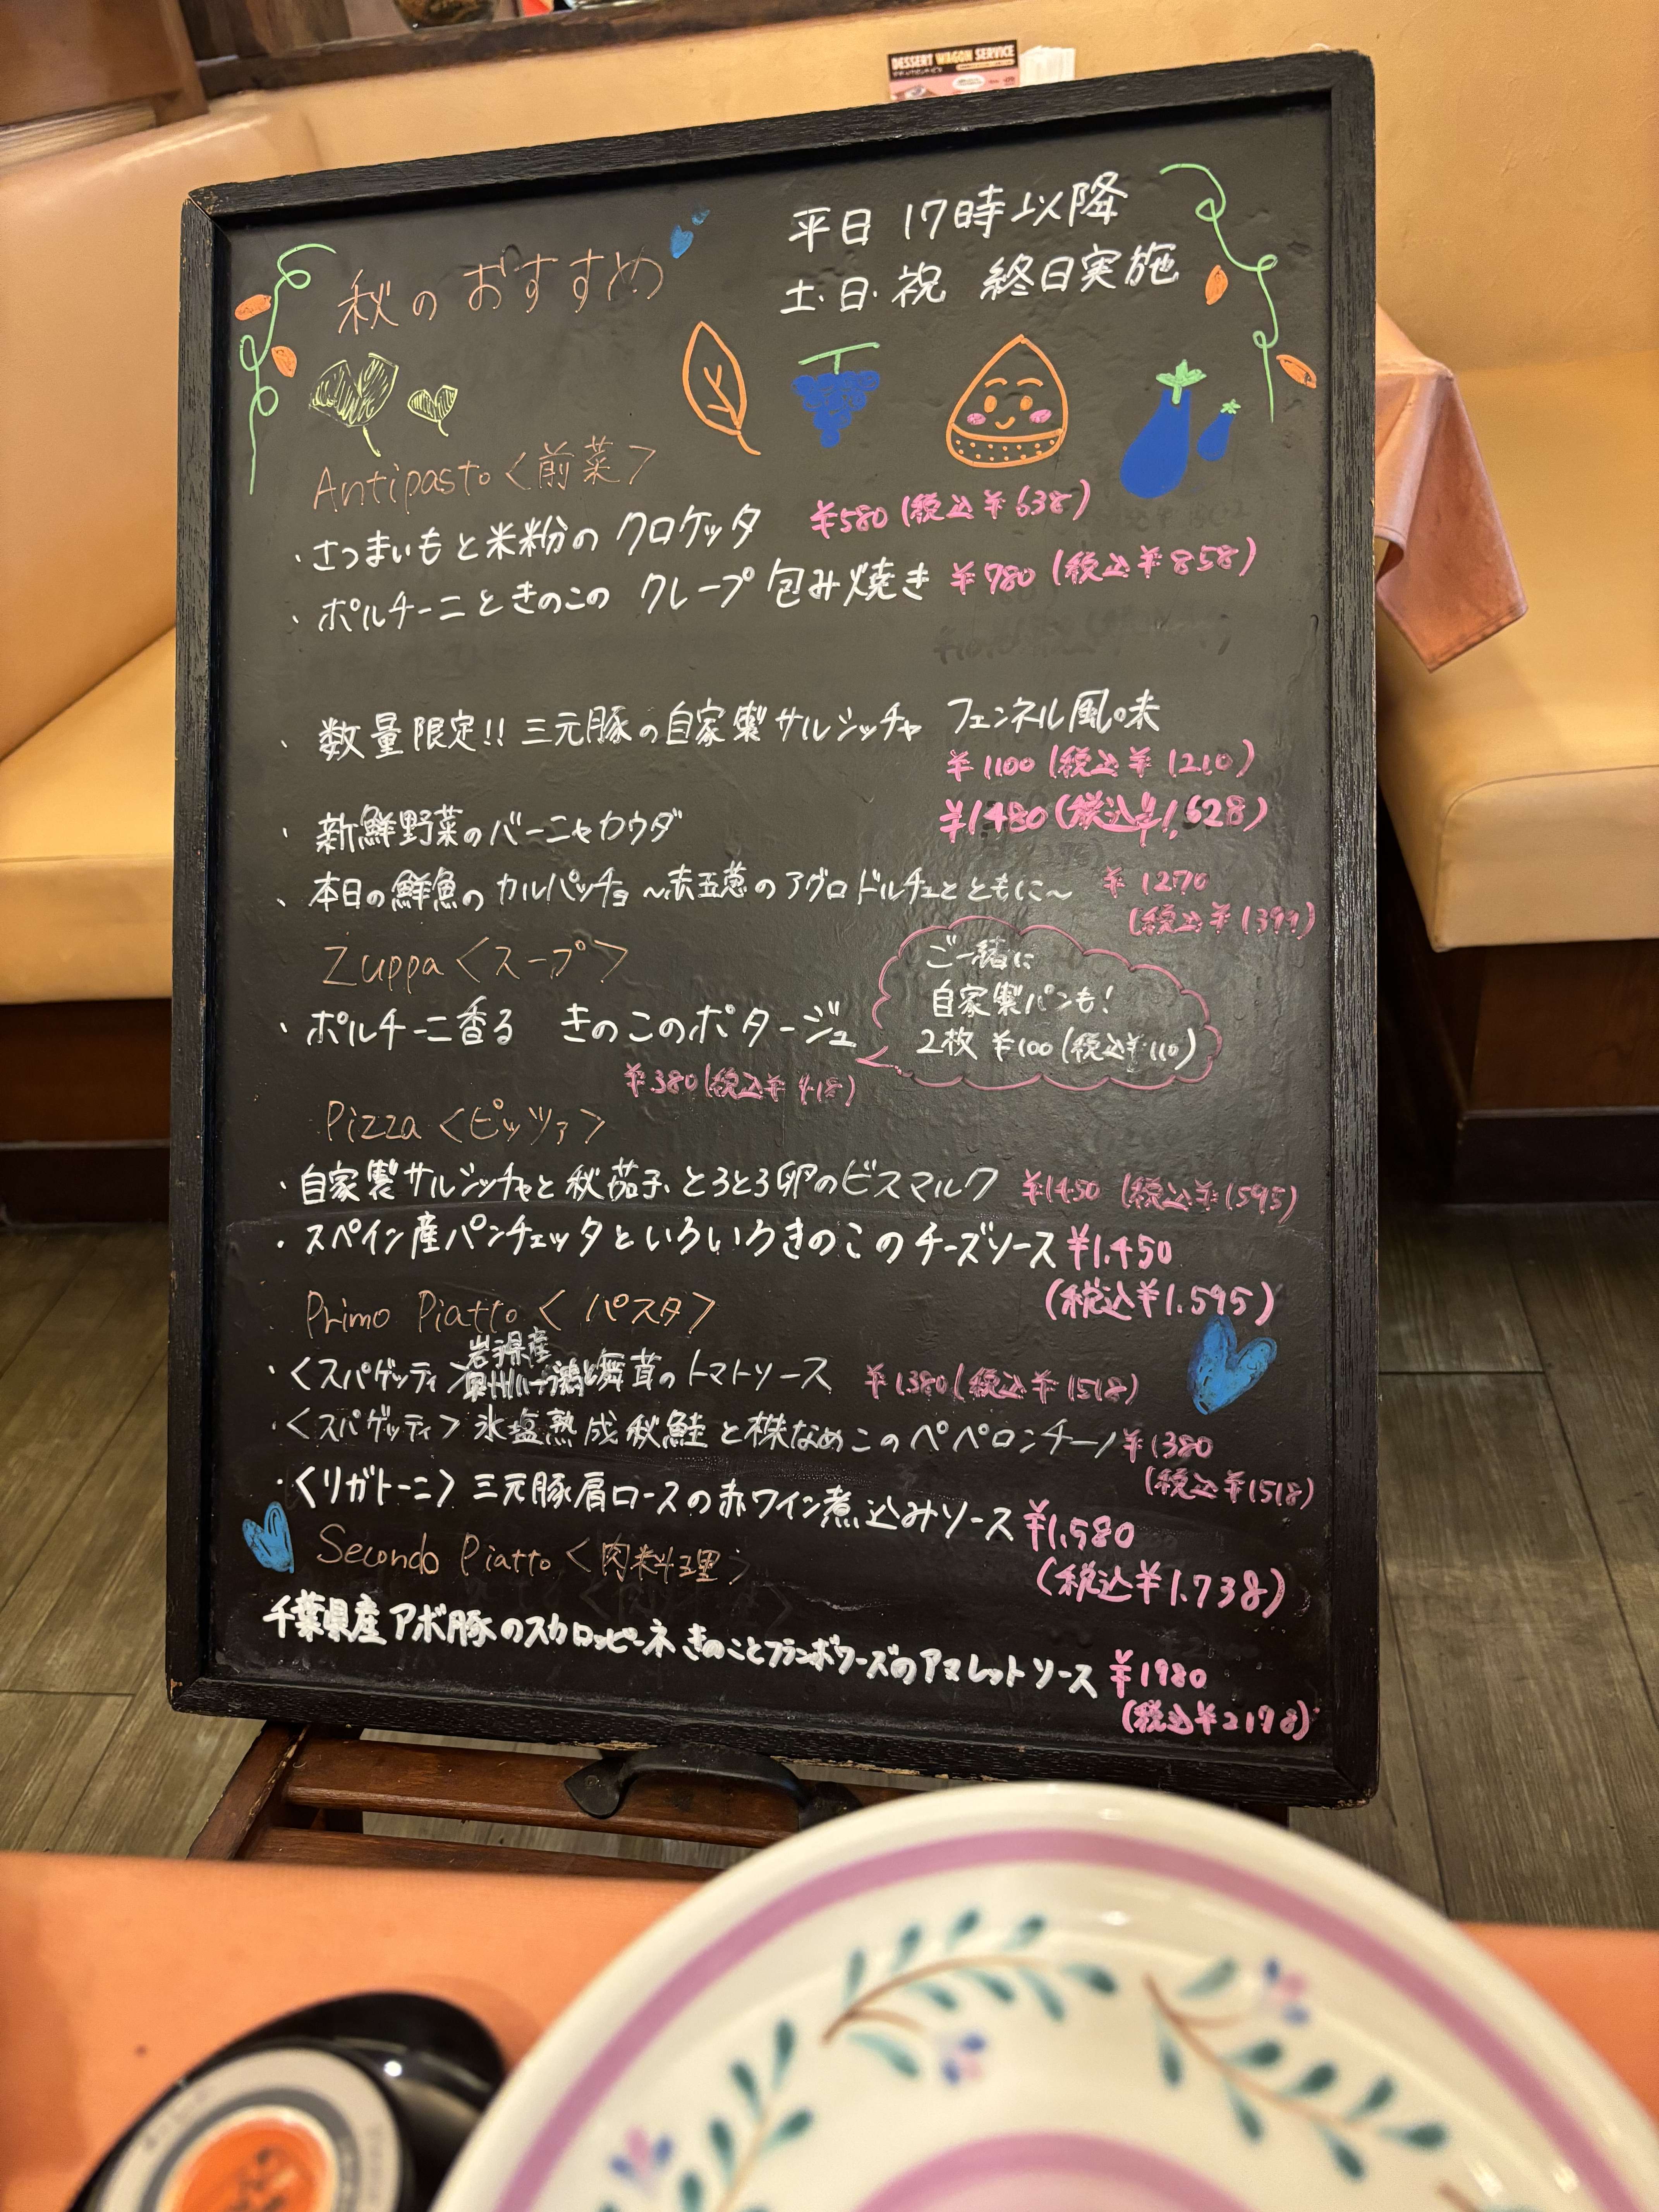 DESSERT WAGON SERVICE
秋のおすすめ
平日 17時以降
土・日・祝 終日実施
Antipasto〈前菜〉
・さつまいもと米粉の クロケッタ ¥580(税込¥638)
・ポルチーニときのこの クレープ包み焼き ¥780(税込¥858)
・数量限定!! 三元豚の自家製サルシッチャ フェンネル風味
¥1100(税込¥1210)
・新鮮野菜のバーニャカウダ ¥1480(税込¥1,628)
・本日の鮮魚のカルパッチョ ~赤玉葱のアグロドルチェとともに~ ¥1270
(税込¥1397)
Zuppa〈スープ〉
・ポルチーニ香る きのこのポタージュ
¥380(税込¥418)
ご一緒に
自家製パンも!
2枚 ¥100(税込¥110)
Pizza〈ピッツァ〉
・自家製サルシッチャと秋茄子、とろとろ卵のビスマルク ¥1450(税込¥1595)
・スペイン産パンチェッタといろいろきのこのチーズソース ¥1,450
(税込¥1,595)
Primo Piatto〈パスタ〉
・〈スパゲッティ〉岩手県産奥州ハーブ鶏と舞茸のトマトソース ¥1380(税込¥1518)
・〈スパゲッティ〉氷塩熟成秋鮭と株なめこのペペロンチーノ ¥1380
(税込¥1518)
・〈リガトーニ〉三元豚肩ロースの赤ワイン煮込みソース ¥1,580
(税込¥1,738)
Secondo Piatto〈肉料理〉
千葉県産アボ豚のスカロッピーネ きのことフランボワーズのアマレットソース ¥1980
(税込¥2178)